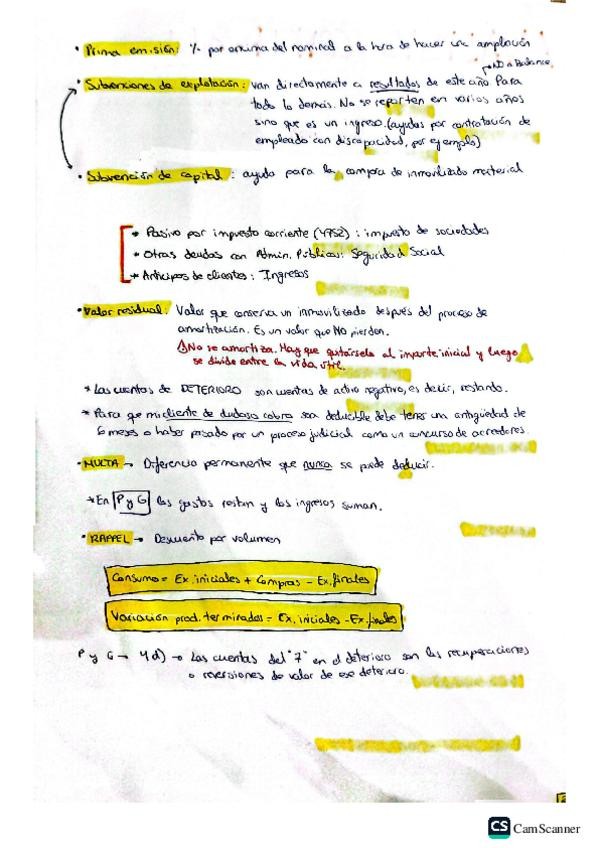 • Prima emisión: % por encima del nominal a la hora de hacer una ampliación
→ NO a Balance
• Subvenciones de explotación: van directamente a resultados de este año para
todo lo demás. No se reparten en varios años
sino que es un ingreso. (ayudas por contratación de
empleado con discapacidad, por ejemplo)
• Subvención de capital: ayuda para la compra de inmovilizado material
→ Pasivo por impuesto corriente (4752): impuesto de sociedades
→ Otras deudas con Admin. Públicas: Seguridad Social
→ Anticipos de clientes: Ingresos
• Valor residual: Valor que conserva un inmovilizado después del proceso de
amortización. Es un valor que NO pierden.
⚠No se amortiza. Hay que quitárselo al importe inicial y luego
se divide entre la vida útil.
* Las cuentas de DETERIORO son cuentas de activo negativo, es decir, restando.
* Para que mi cliente de dudoso cobro sea deducible debe tener una antigüedad de
6 meses o haber pasado por un proceso judicial como un concurso de acreedores.
• MULTA → Diferencia permanente que nunca se puede deducir.
* En P y G los gastos restan y los ingresos suman.
• RAPPEL → Descuento por volumen
Consumo = Ex. iniciales + Compras - Ex. finales
Variación prod. terminados = Ex. iniciales - Ex. finales
P y G → 4 d) → Las cuentas del "7" en el deterioro son las recuperaciones
o reversiones de valor de ese deterioro.
CS CamScanner